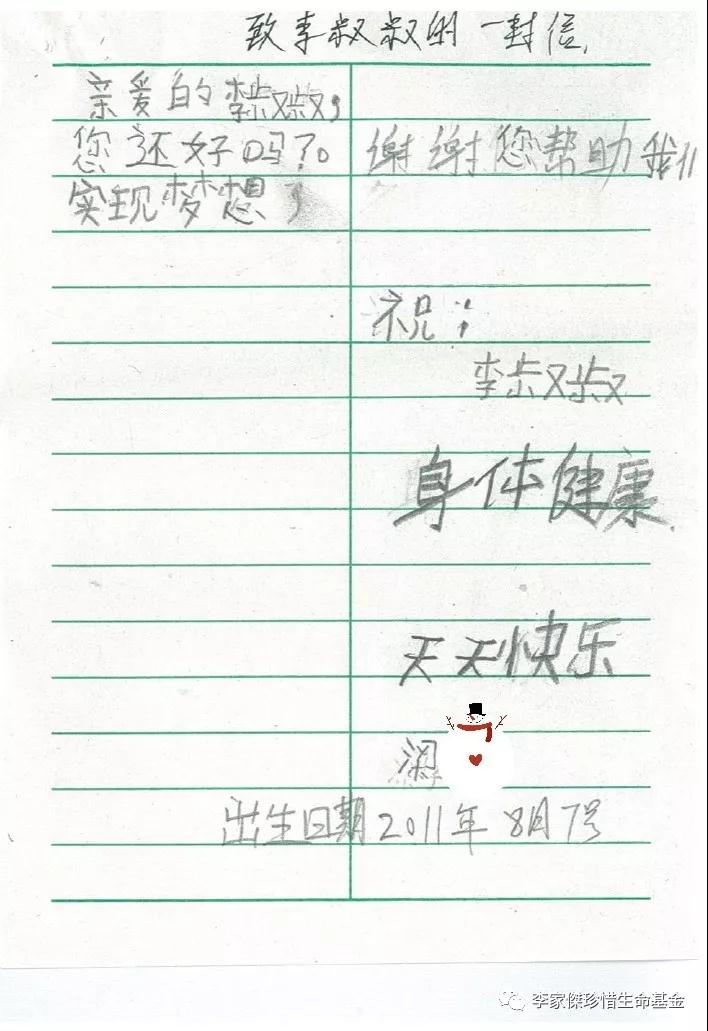 致李叔叔的一封信.
亲爱的李叔叔，
您还好吗？。谢谢您帮助我们
实现梦想，
祝：
李叔叔
身体健康
天天快乐
出生日期2011年8月7号
李家傑珍惜生命基金